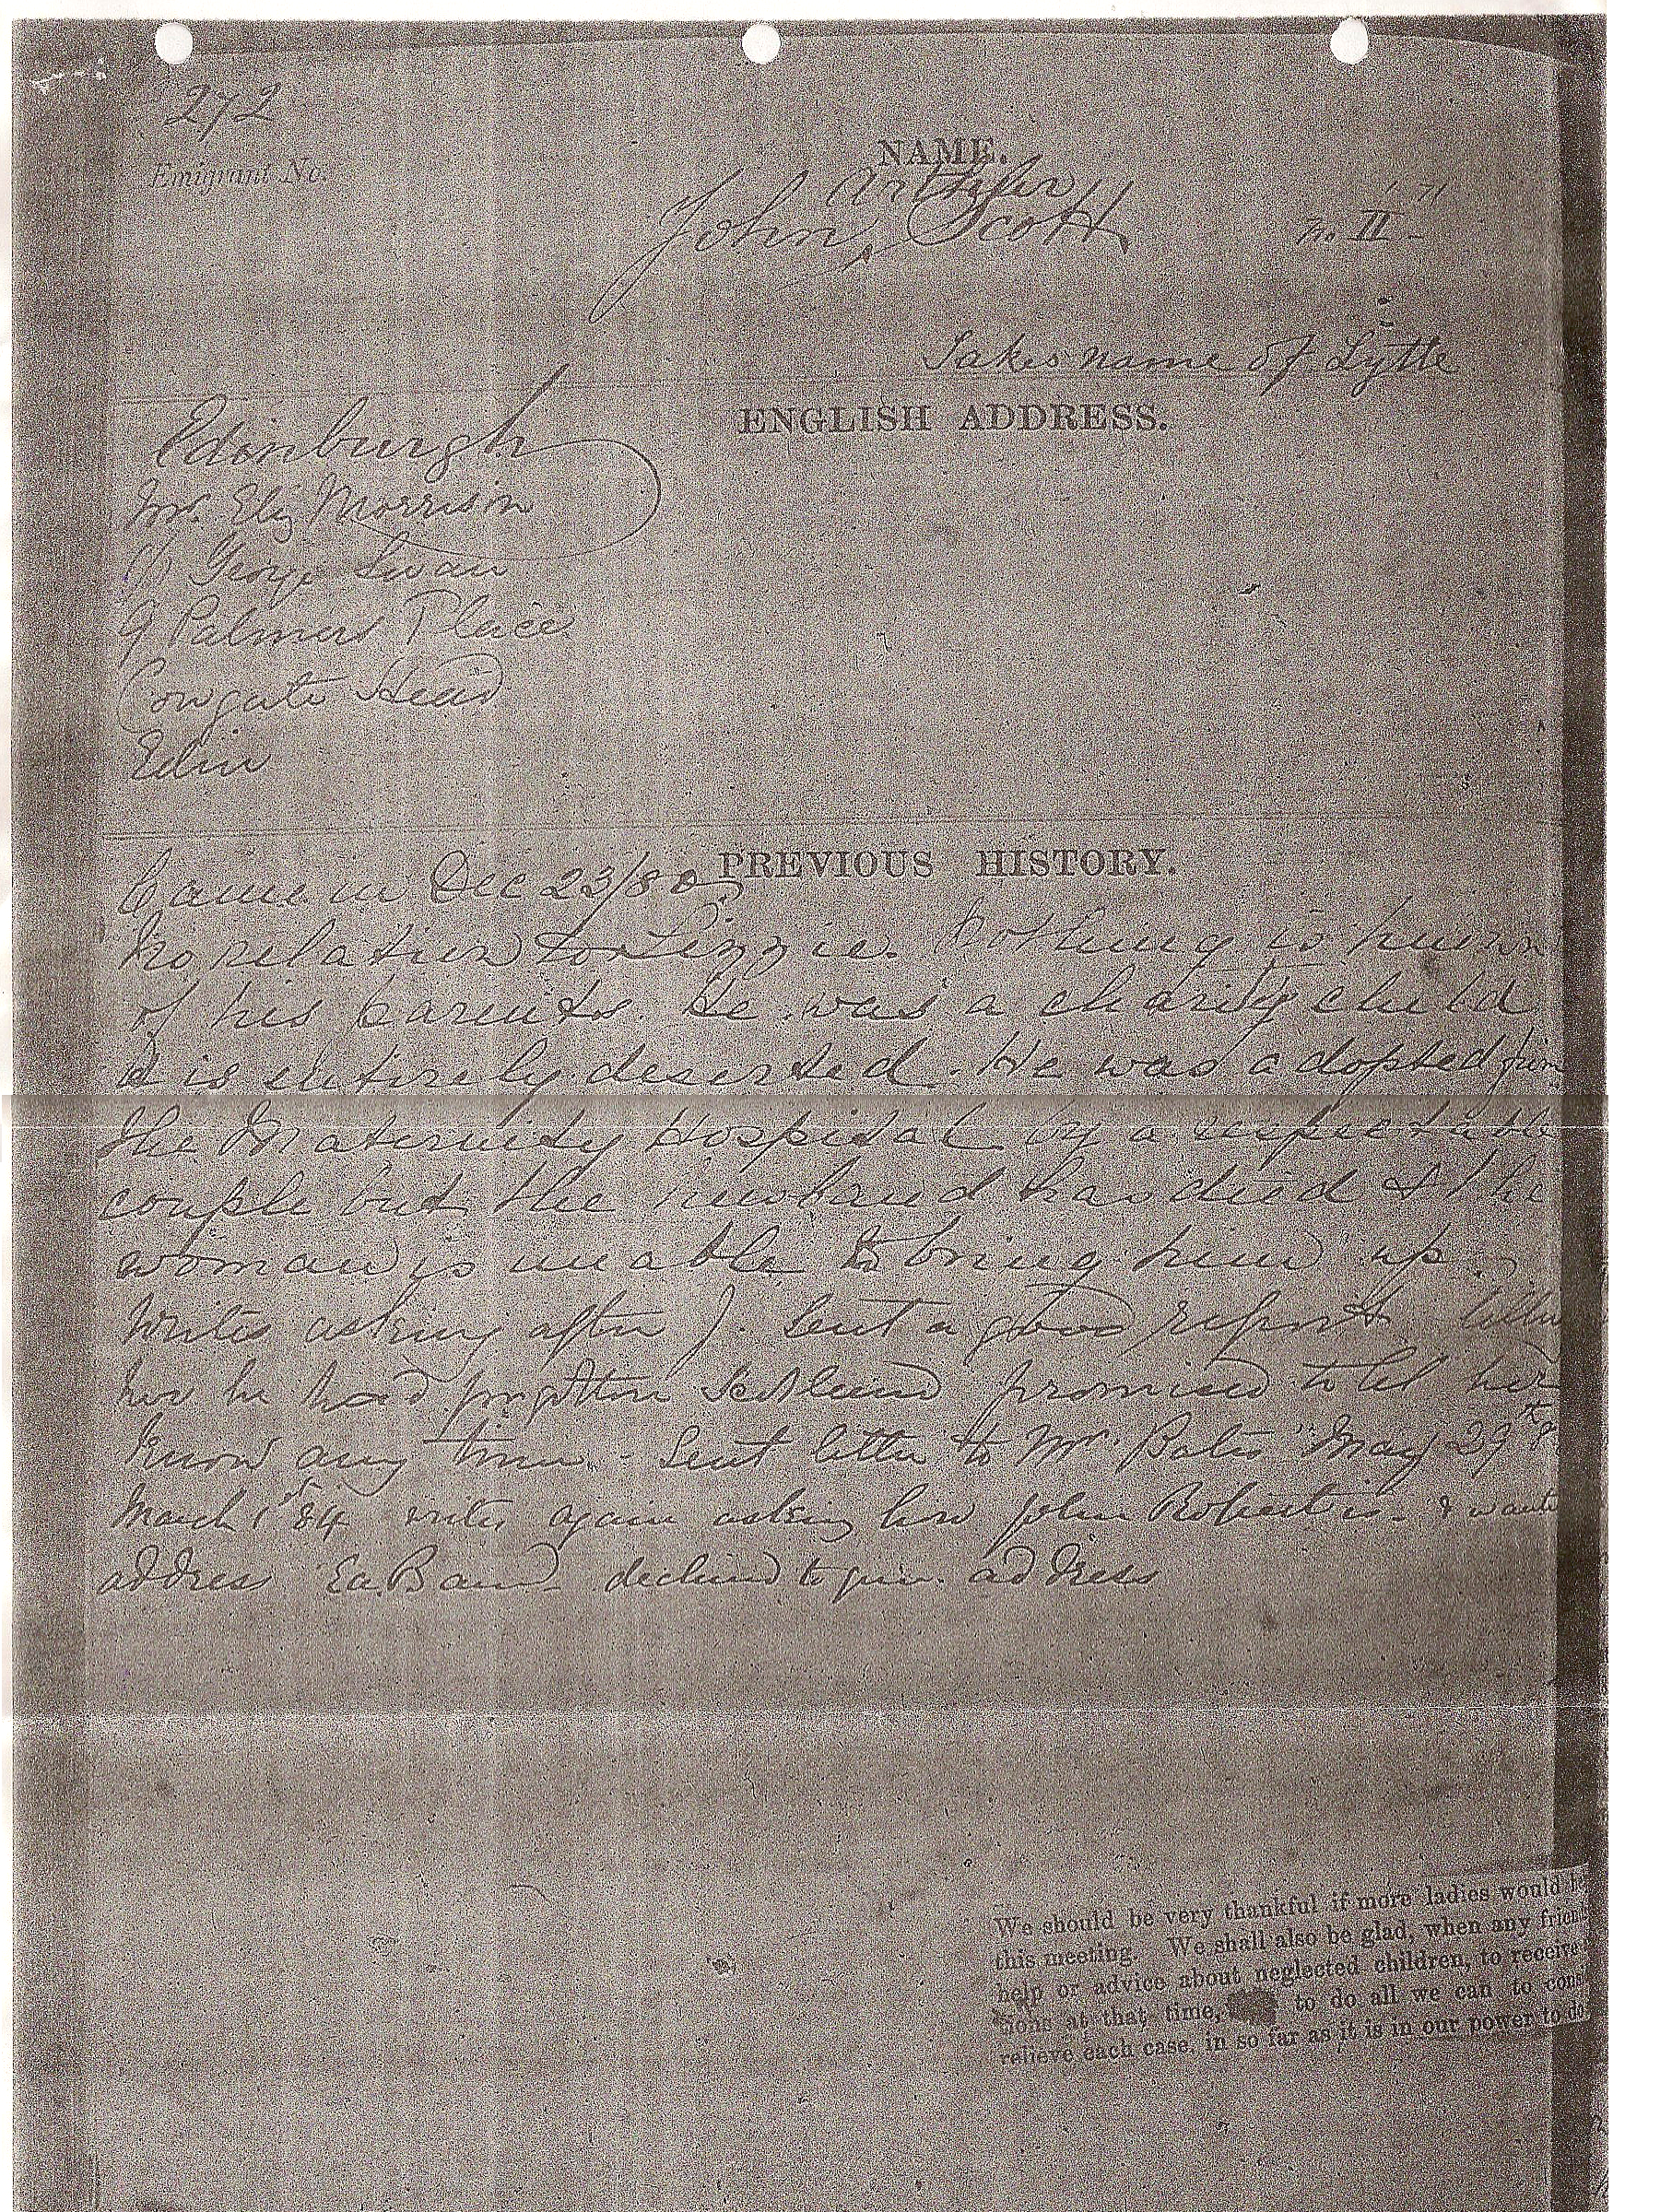 272
Emigrant No.
NAME.
Arthur
John Scott
II
Takes name of Lytte
ENGLISH ADDRESS.
Edinburgh
Mrs. Eliz Morrison
c/o George Swan
9 Palmers Place
Cowgate Head
Edin
PREVIOUS HISTORY.
Came in Dec 23/80
No relation to Lizzie. Nothing is known
of his parents. He was a charity child
& is entirely deserted. He was adopted from
the Maternity Hospital by a respectable
couple but the husband has died & the
woman is unable to bring him up.
Writes asking after J. Sent a good report
her he had forgotten Scotland promised to let her
know any time. Sent letter to Mr. Bates May 29th
March 1st 84 writes again asking how John Robert is - & wants
address declined to give address
We should be very thankful if more ladies would
this meeting. We shall also be glad, when any
help or advice about neglected children, to receive
at that time, to do all we can to
relieve each case, in so far as it is in our power to do